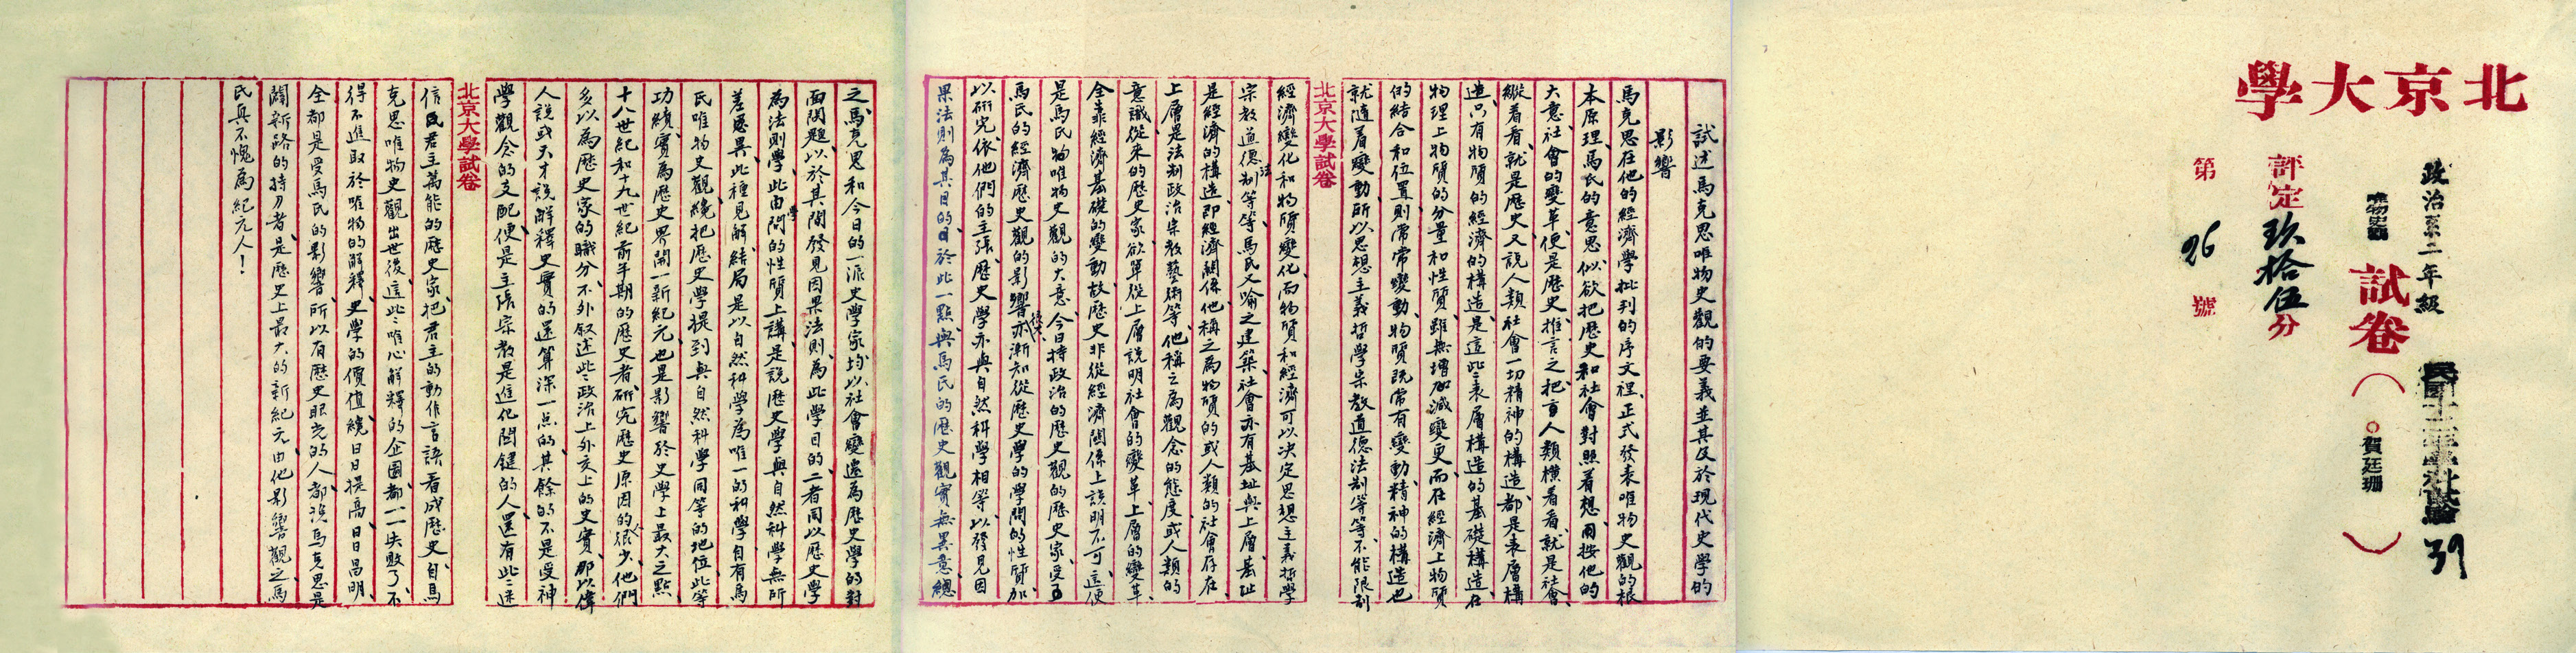 北京大學
政治系二年級
唯物史觀 試卷（賀廷珊）
39
評定玖拾伍分
第 26 號
試述馬克思唯物史觀的要義並其及於現代史學的
影響
馬克思在他的經濟學批判的序文裡、正式發表唯物史觀的根
本原理、馬氏的意思、似欲把歷史和社會對照着想、因按他的
大意、社會的變革便是歷史、推言之、把有人類橫着看、就是社會、
縱着看、就是歷史、又說人類社會一切精神的構造、都是表層構
造、只有物質的經濟的構造、是這些表層構造的基礎構造、在
物理上物質的分量和性質、雖無增加減變更、而在經濟上物質
的結合和位置、則常常變動、物質既常有變動、精神的構造也
就隨着變動、所以思想主義哲學宗教道德法制等等、不能限制
北京大學試卷
經濟變化和物質變化、而物質和經濟可以決定思想主義哲學
宗教道德法制等等、馬氏又喻之建築、社會亦有基址與上層、基址
是經濟的構造、即經濟關係、他稱之為物質的或人類的社會存在、
上層是法制政治宗教藝術等、他稱之為觀念的態度或人類的
意識、從來的歷史家欲單從上層說明社會的變革、上層的變革、
全靠經濟基礎的變動、故歷史非從經濟關係上說明不可、這便
是馬氏唯物史觀的大意、今日持政治的歷史觀的歷史家、受了
馬氏的經濟歷史觀的影響後、亦漸知從歷史學的學問的性質加
以研究、依他們的主張、歷史學亦與自然科學相等、以發見因
果法則為其目的、於此一點、與馬氏的歷史觀實無異意、總
之、馬克思和今日的一派史學家、均以社會變遷為歷史學的對
面問題、以於其間發見因果法則、為此學目的、二者同以歷史學
為法則學、此由學問的性質上講、是說歷史學與自然科學無所
差異、此種見解、結局是以自然科學為唯一的科學、自有馬
氏唯物史觀、纔把歷史學提到與自然科學同等的地位、此等
功績、實為歷史界開一新紀元、也是影響於史學上最大之點、
十八世紀和十九世紀前半期的歷史者、研究歷史原因的很少、他們
多以為歷史家的職分、不外叙述些政治上外交上的史實、那以偉
人說或天才說解釋史實的、還算深一点的、其餘的不是受神
學觀念的支配、便是主張宗教是進化關鍵的人、還有些迷
北京大學試卷
信君主萬能的歷史家、把君主的動作言語看成歷史、自馬
克思唯物史觀出世後、這些唯心解釋的企圖、都一一失敗了、不
得不進取於唯物的解釋、史學的價值、纔日日提高、日日昌明、
全都是受馬氏的影響、所以有歷史眼光的人、都說馬克思是
闢新路的持刀者、是歷史上最大的新紀元、由他影響觀之、馬
氏真不愧為紀元人！